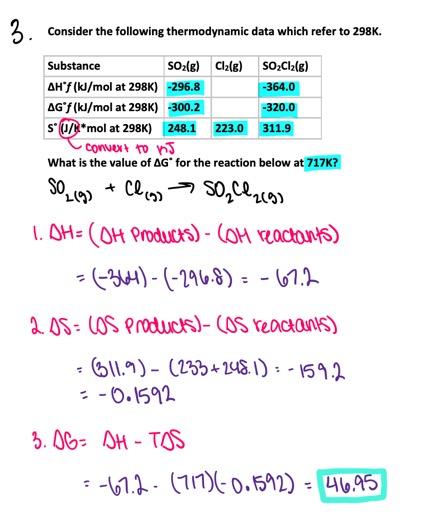 3. Consider the following thermodynamic data which refer to 298K.
Substance SO₂(g) Cl₂(g) SO₂Cl₂(g)
ΔH°f (kJ/mol at 298K) -296.8 -364.0
ΔG°f (kJ/mol at 298K) -300.2 -320.0
S° (J/K*mol at 298K) 248.1 223.0 311.9
convert to kJ
What is the value of ΔG° for the reaction below at 717K?
SO₂(g) + Cl(g) → SO₂Cl₂(g)
1. ΔH = (ΔH Products) - (ΔH reactants)
= (-364) - (-296.8) = -67.2
2. ΔS = (ΔS Products) - (ΔS reactants)
= (311.9) - (233 + 248.1) = -159.2
= -0.1592
3. ΔG = ΔH - TΔS
= -67.2 - (717)(-0.1592) = 46.95